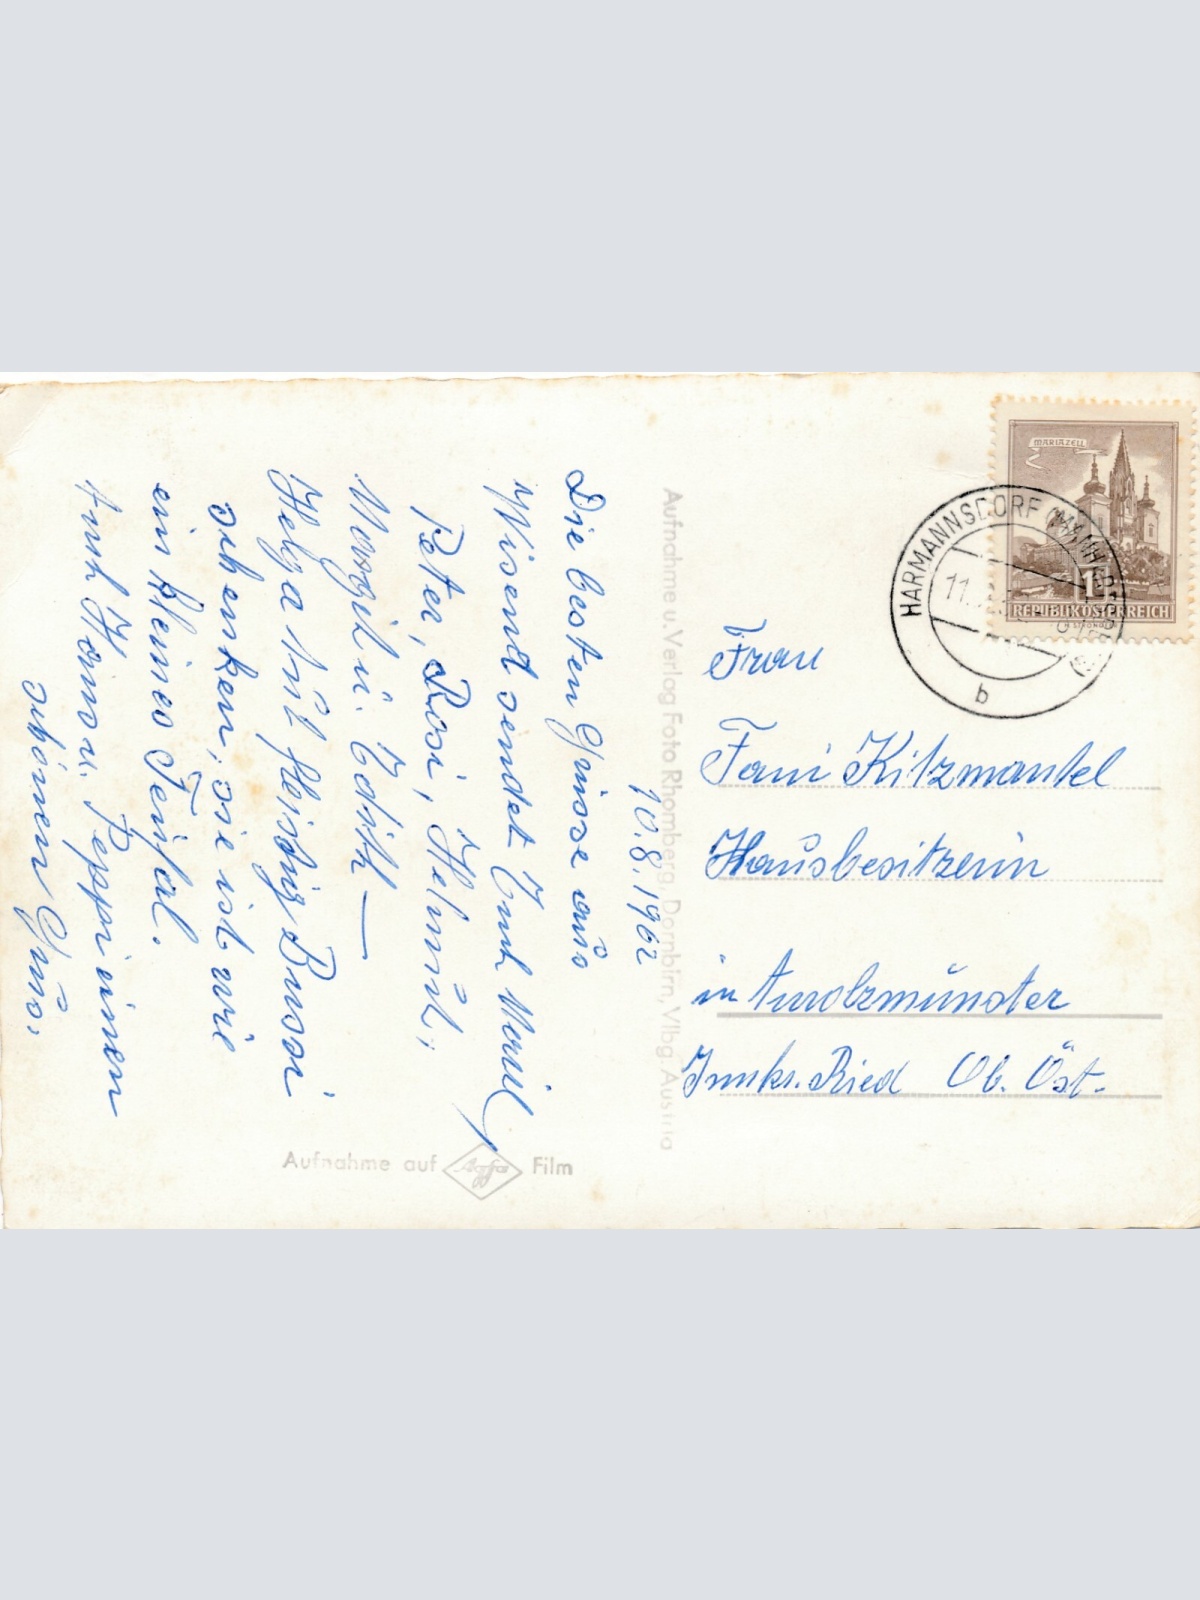 10.8.1962
Die besten Grüsse aus
Wisent sendet Euch
Peter, Rosi, Helmut,
Margit u. Edith —
Helga tut fleißig Bussi
schenken, sie ist wie
ein kleines Teufal.
Auch Hans u. Peppi einen
schönen Gruß.
Frau
Fani Kitzmantel
Hausbesitzerin
in Aurolzmünster
Innkr. Ried Ob. Öst.
Aufnahme u. Verlag Foto Rhomberg, Dornbirn, Vlbg. Austria
Aufnahme auf Agfa Film
MARIAZELL
1S
REPUBLIK ÖSTERREICH
HARMANNSDORF
11.
b